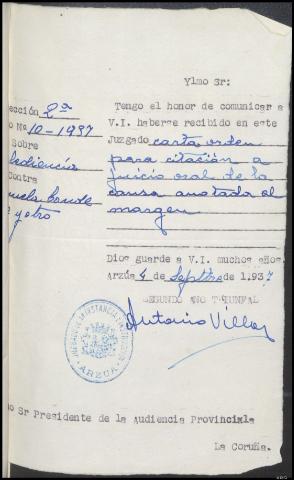 Ylmo Sr:
Tengo el honor de comunicar a
V.I. haberse recibido en este
Juzgado carta orden
para citación a
juicio oral de la
causa anotada al
margen
ección 2ª
o Nº 10-1937
Sobre
bediencia
ontra
y otro
Dios guarde a V.I. muchos años.
Arzúa 4 de Septbre de 1.937
SEGUNDO AÑO TRIUNFAL
Antonio Villar
ARZUA
o Sr Presidente de la Audiencia Provincixla
La Coruña.